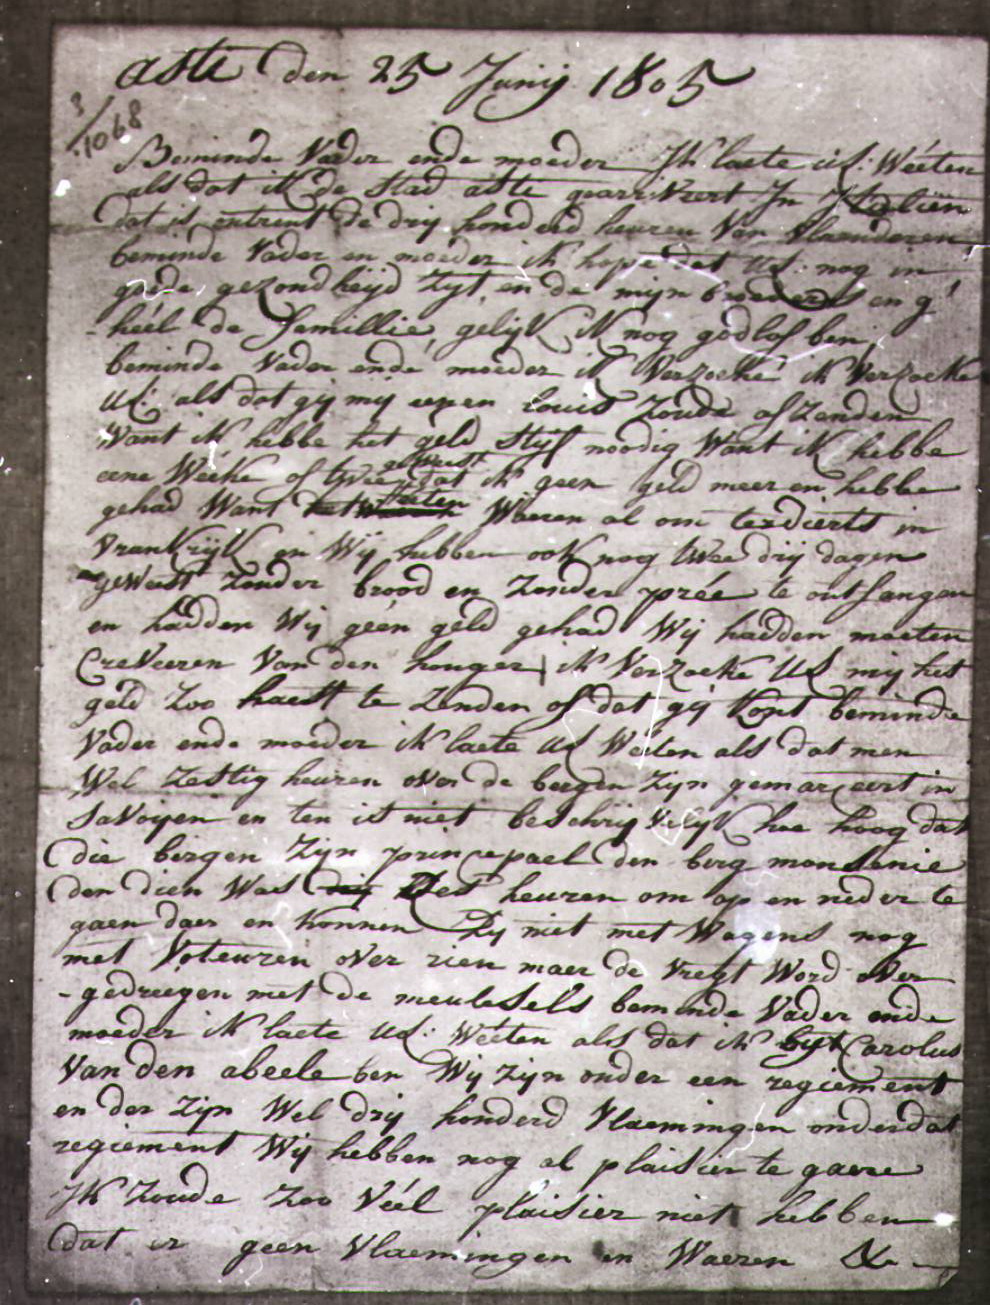 aste den 25 Junij 1805
3/1068
Beminde Vader ende moeder Ik laete ul: Wéeten
als dat ik de stad aste guarnizert In Itालien
dat is ontrent de drij honderd heuren Van Vlaenderen
beminde Vader en moeder ik hope dat ul: nog in
goede gezondheijd Zijt, en de mijn broeders en g'
-heél de famillie, gelijk ik nog godlof ben,
beminde Vader ende moeder ik Verzoeke ik Verzoeke
ul: als dat gij mij eenen Louis Zoude afzenden
Want ik hebbe het geld stijf noodig Want ik hebbe
eene Weéke of twee geweest dat ik geen geld meer en hebbe
gehad Want Waeren al om terdierts in
Vrankrijk en Wij hebben ook nog twee drij dagen
geweest Zonder brood en Zonder prée te ontfangen
en hadden Wij geén geld gehad Wij hadden moeten
CreVeeren Van den honger ik Verzoeke ul mij het
geld Zoo haest te Zenden of dat gij kont beminde
Vader ende moeder ik laete ul Wéeten als dat men
Wel Zestig heuren over de bergen Zijn gemarceert in
SaVoijen en ten is niet beschrijVelijk hoe hoog dat
die bergen Zijn princepael den berg mondenie
den dien Was Zes heuren om op en neder te
gaen daer en konnen Zij niet met Wagens nog
met Voiteuren oVer rien maer de Vregt Word oVer
-gedreegen met de meulesels beminde Vader ende
moeder ik laete ul: Wéeten als dat ik bijt Carolus
Van den abeele ben Wij Zijn onder een regiement
en der Zijn Wel drij honderd Vlaemingen onder dat
regiement Wij hebben nog al plaisier te gaere
Ik Zoude Zoo Véel plaisier niet hebben
dat er geen Vlaemingen en Waeren &c